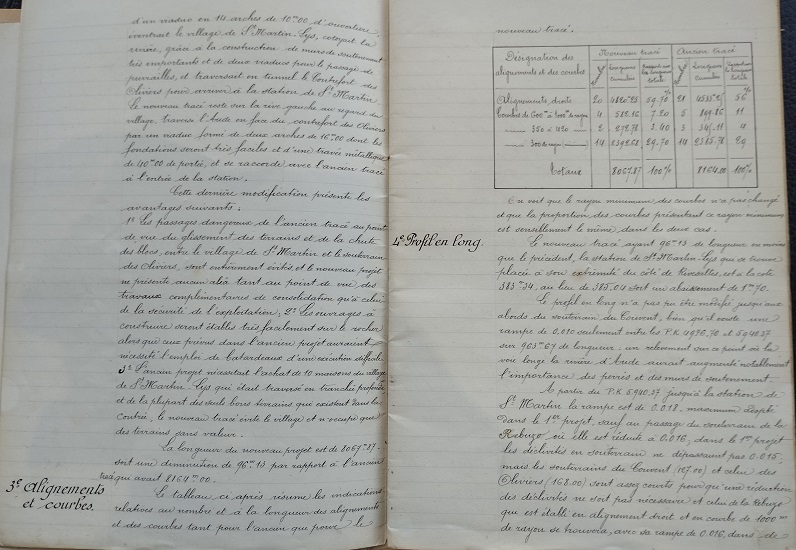 d'un viaduc en 14 arches de 10m00 d'ouverture,
éventrait le village de St Martin-Lys, cotoyait la
rivière, grâce à la construction de murs de soutènement
très importants et de deux viaducs pour le passage de
et traversait en tunnel le Contrefort des
Oliviers pour arriver à la station de St Martin.
le nouveau tracé reste sur la rive gauche au regard du
village, traverse l'Aude en face du contrefort des Oliviers
par un viaduc formé de deux arches de 16m00 dont les
fondations seront très faciles et d'une travée métallique
de 40m00 de portée, et se raccorde avec l'ancien tracé
à l'entrée de la station.
Cette dernière modification présente les
avantages suivants:
1° Les passages dangereux de l'ancien tracé au point
de vue du glissement des terrains et de la chute
des blocs, entre le village de St Martin et le souterrain
des Oliviers, sont entièrement évités et le nouveau projet
ne présente aucun aléa tant au point de vue des
travaux complémentaires de consolidation qu'à celui
de la sécurité de l'exploitation; 2° Les ouvrages à
construire seront établis très facilement sur le rocher
alors que ceux prévus dans l'ancien projet auraient
nécessité l'emploi de batardeaux d'une exécution difficile
3° L'ancien projet nécessitait l'achat de 10 maisons du village
de St Martin-Lys qui était traversé en tranchée profonde
et de la plupart des seuls bons terrains que existent dans la
contrée, le nouveau tracé évite le village et n'occupe que
des terrains sans valeur.
La longueur du nouveau projet est de 8067m87
soit une diminution de 96m13 par rapport à l'ancien
tracé qui avait 8164m00.
3e Alignements
et courbes.
Le tableau ci après résume les indications
relatives au nombre et à la longueur des alignements
et des courbes tant pour l'ancien que pour le
nouveau tracé.
Désignation des alignements et des courbes
Nouveau tracé
Ancien tracé
Longueurs cumulées
Longueurs cumulées
Alignements droits 20 4820.25 59.70 % 21 56 %
Courbes de 600m à 1000m de rayon 4 582.16 7.20 5 899.86 11
350 à 420 2 272.78 3.40 3 4
300m de rayon 14 2392.68 29.70 14 2385.78 29
Totaux 8067.87 100% 8164.00 100%
On voit que le rayon minimum des courbes n'a pas changé
et que la proportion des courbes présentant ce rayon minimum
est sensiblement le même dans les deux cas.
4e Profil en long.
Le nouveau tracé ayant 96m13 de longueur en moins
que le précédent, la station de St Martin-Lys que se trouve
placée à son extrémité du côté de Rivesaltes, est à la cote
383m34, au lieu de 385.04 soit un abaissement de 1m70.
Le profil en long n'a pas pu être modifié jusqu'aux
abords du souterrain du Couvent, bien qu'il existe une
rampe de 0,010 seulement entre les P.K 4976.70 et 5940.37
sur 963m67 de longueur; un relèvement en ce point où la
voie longe la rivière d'Aude aurait augmenté notablement
l'importance des perrés et des murs de soutènement.
A partir du P.K 5.940.37 jusqu'à la station de
St Martin la rampe est de 0.018, maximum adopté
dans le 1er projet, sauf au passage du souterrain de la
Rebuzo où elle est réduite à 0.016; dans le 1er projet
les déclivités en souterrain ne dépassaient pas 0.015,
mais les souterrains du Couvent (107.00) et celui des
Oliviers (168.00) sont assez courts pour qu'une réduction
des déclivités ne soit pas nécessaire et celui de la Rebuzo
qui est établi en alignement droit et en courbe de 1000m
de rayon se trouvera, avec sa rampe de 0.016, dans de